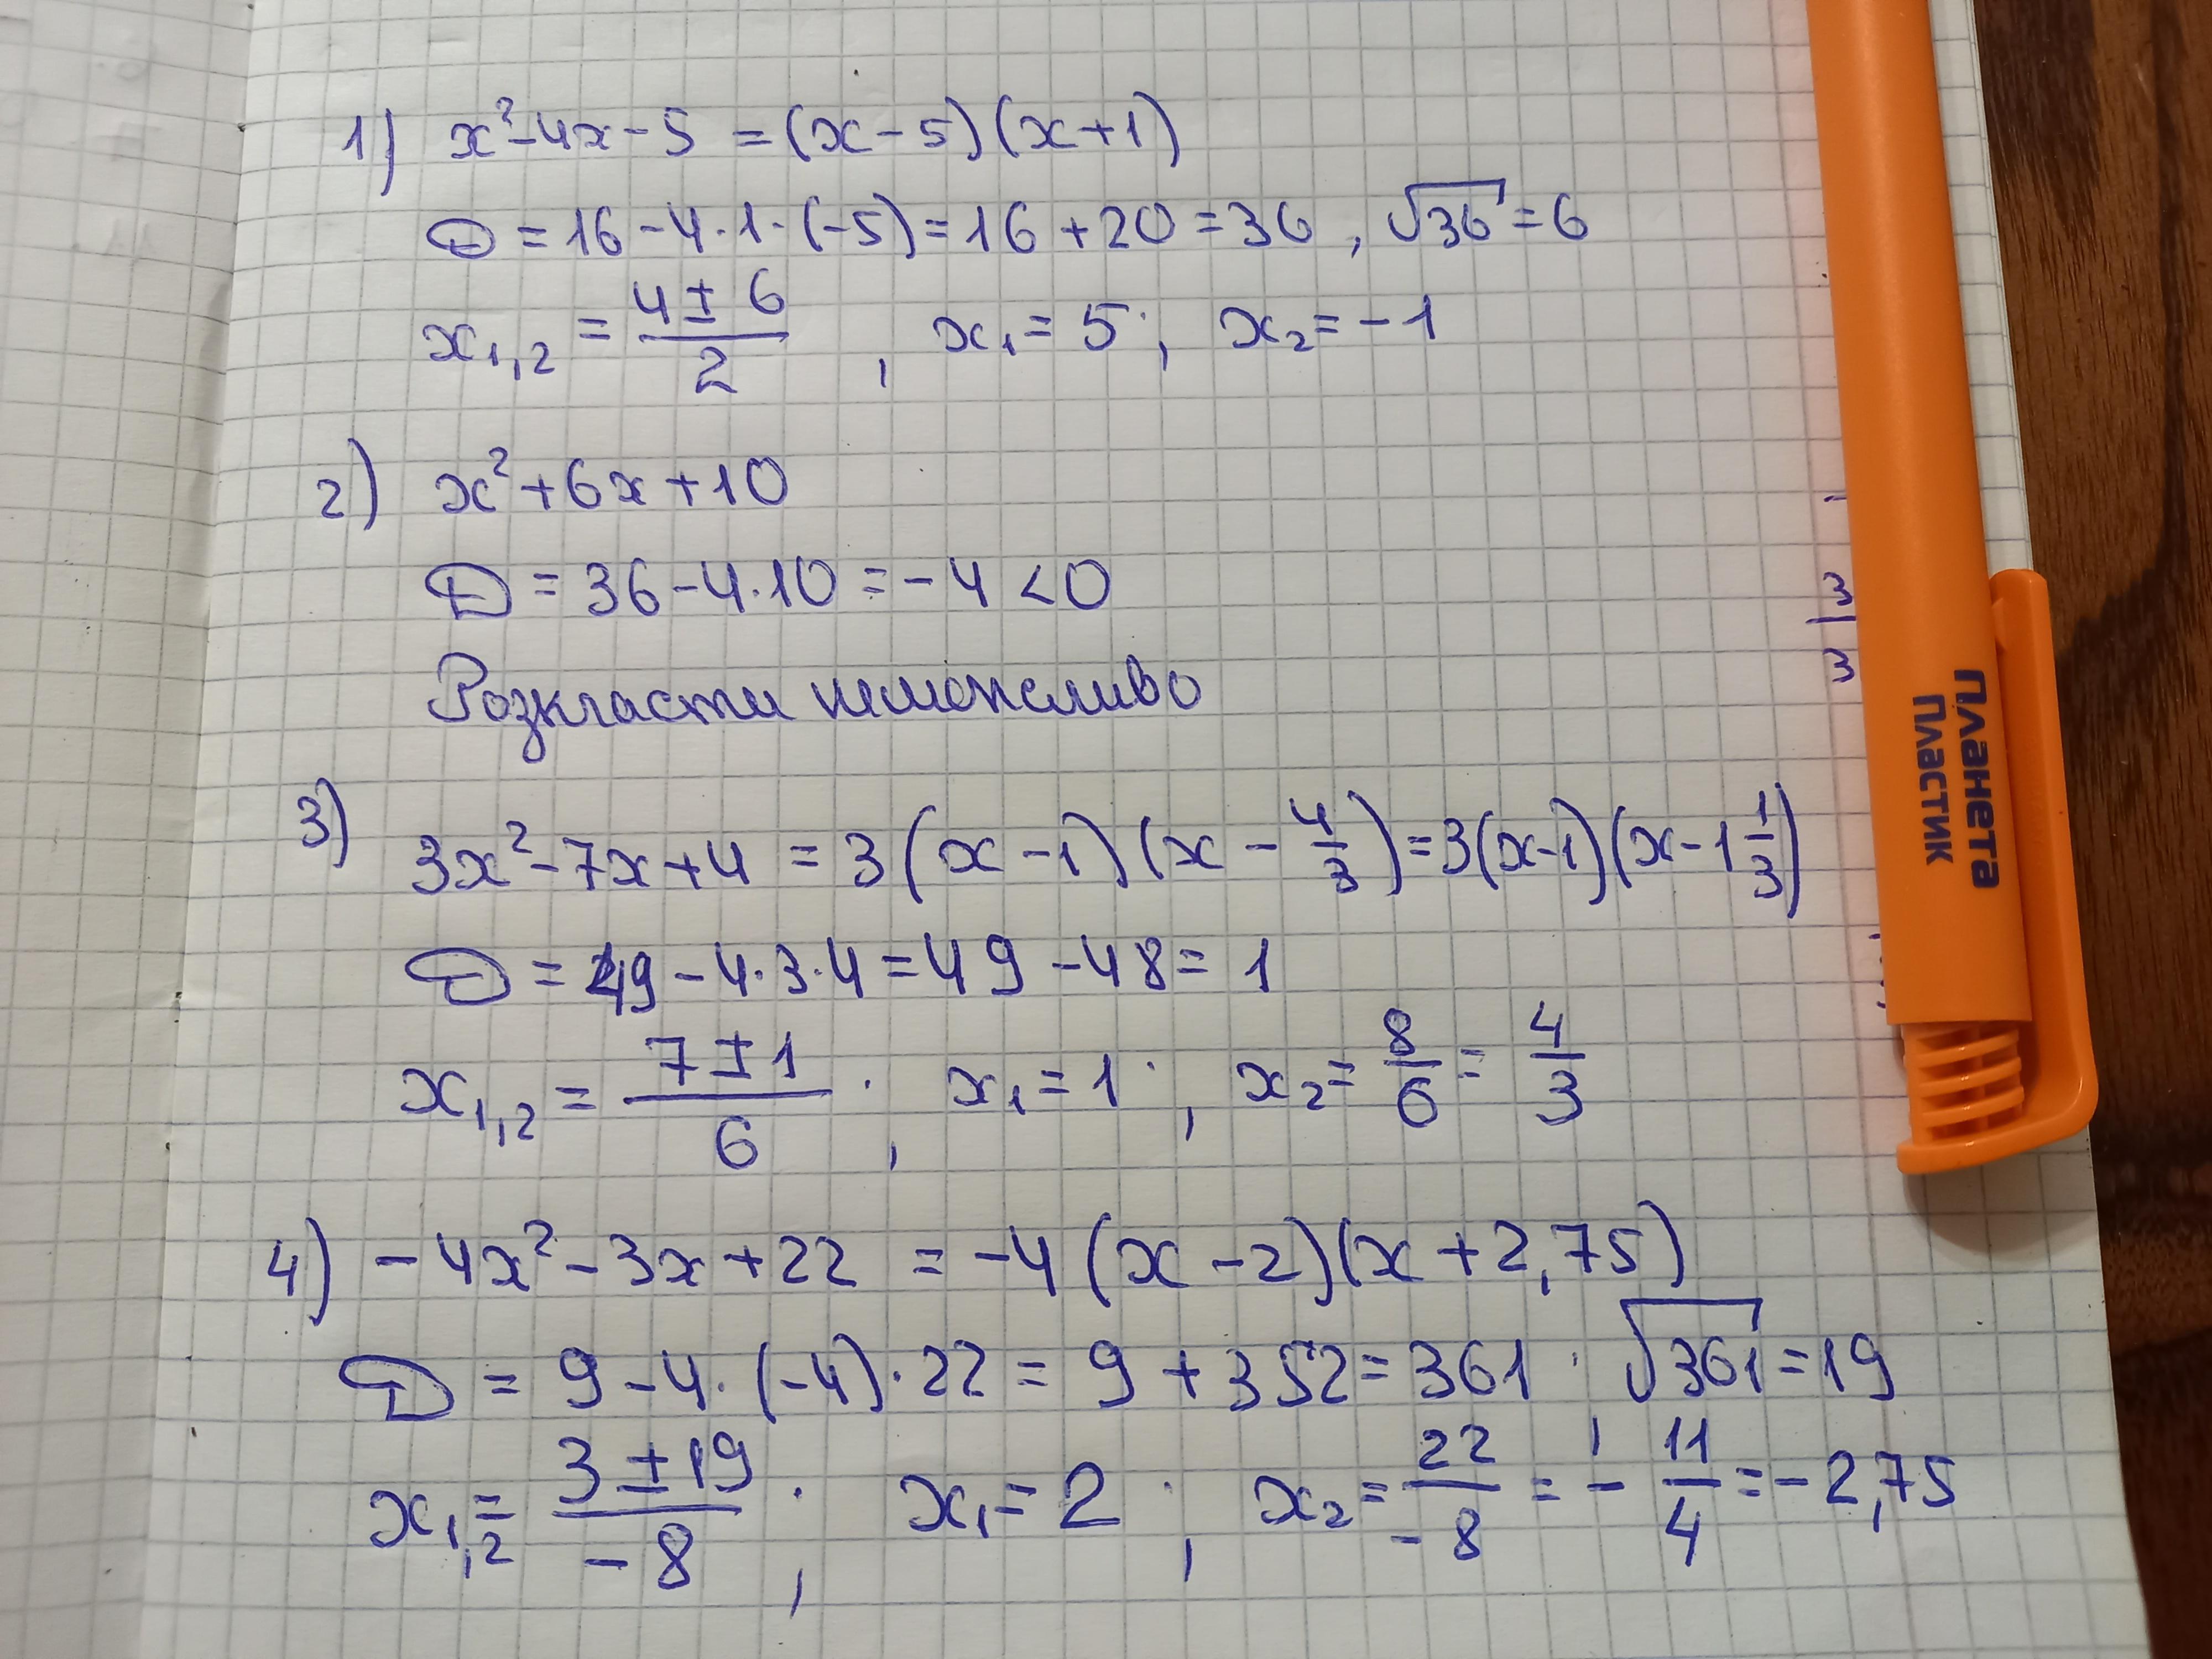 1) x²-4x-5 = (x-5)(x+1)
D = 16-4·1·(-5) = 16+20 = 36, √36 = 6
x₁,₂ = (4±6)/2 ; x₁ = 5 ; x₂ = -1
2) x²+6x+10
D = 36-4·10 = -4 < 0
Розкласти неможливо
3) 3x²-7x+4 = 3(x-1)(x-4/3) = 3(x-1)(x-1 1/3)
D = 49-4·3·4 = 49-48 = 1
x₁,₂ = (7±1)/6 ; x₁ = 1 ; x₂ = 8/6 = 4/3
4) -4x²-3x+22 = -4(x-2)(x+2,75)
D = 9-4·(-4)·22 = 9+352 = 361 ; √361 = 19
x₁,₂ = (3±19)/-8 ; x₁ = 2 ; x₂ = 22/-8 = -11/4 = -2,75
Планета
Пластик